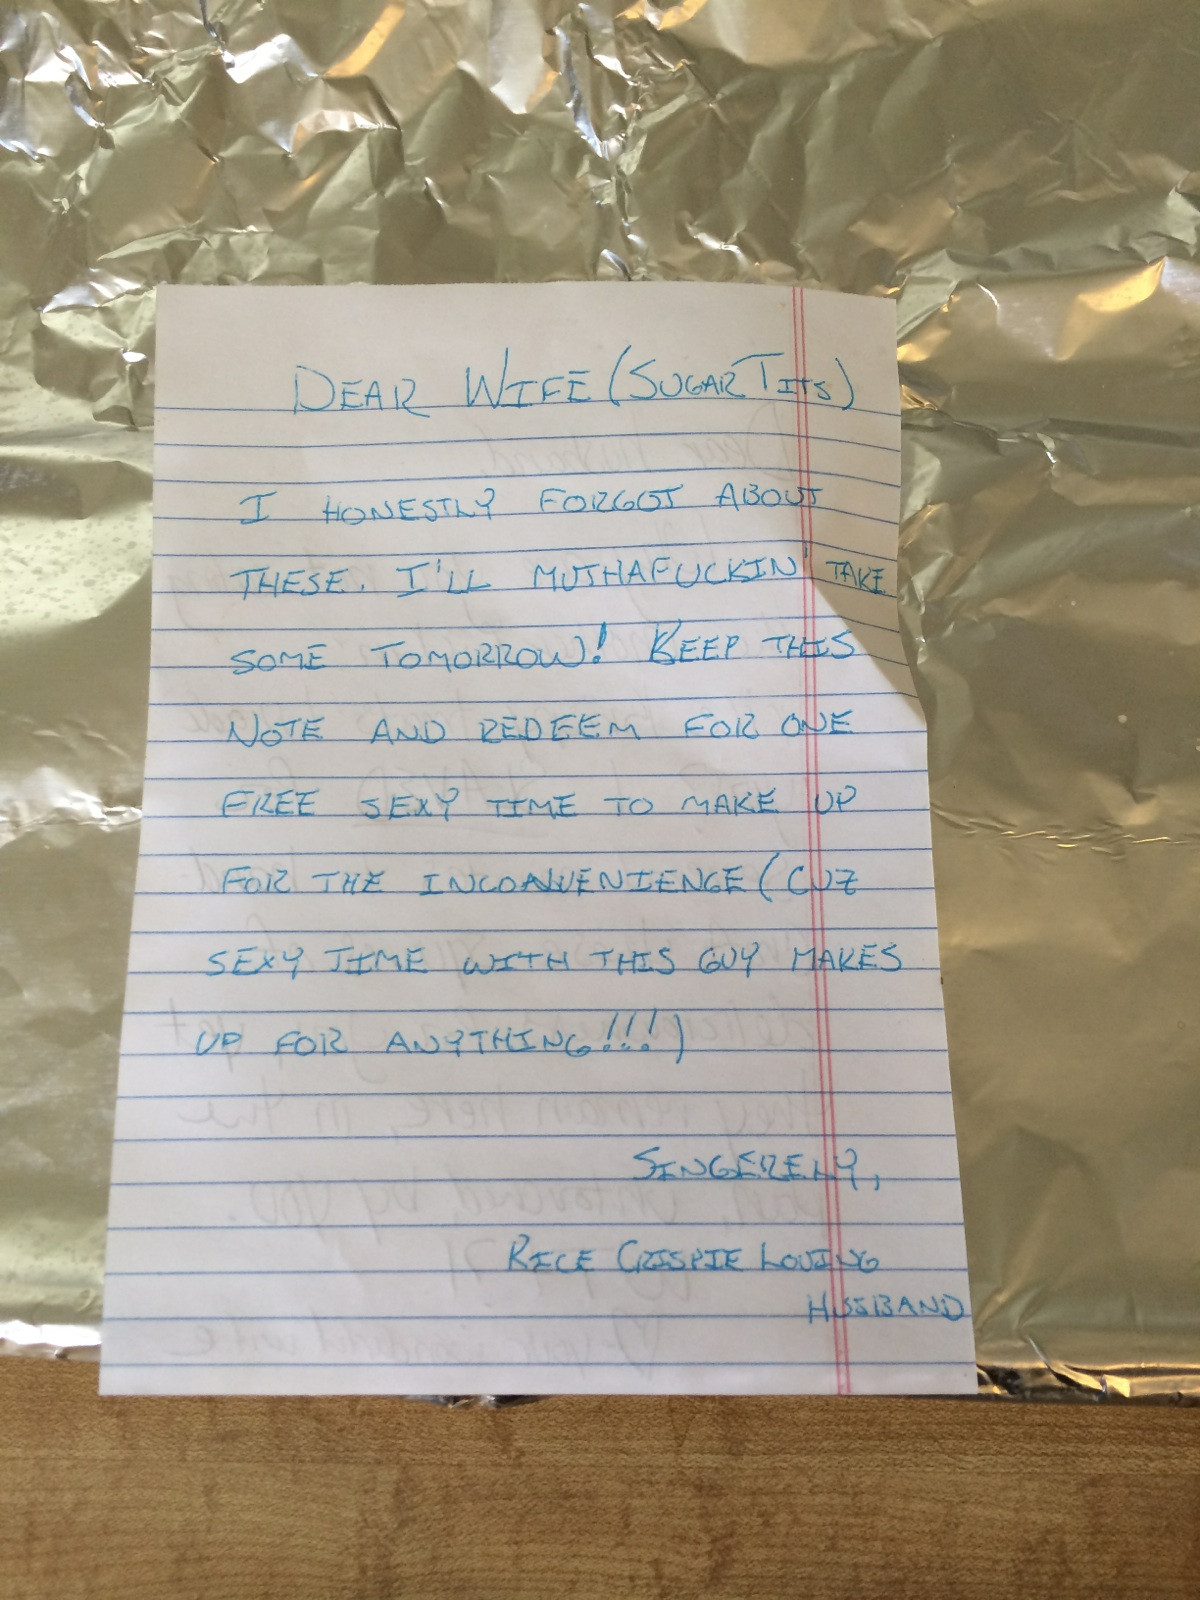 DEAR WIFE (SUGAR TITS)
I HONESTLY FORGOT ABOUT
THESE. I'LL MUTHAFUCKIN' TAKE
SOME TOMORROW! KEEP THIS
NOTE AND REDEEM FOR ONE
FREE SEXY TIME TO MAKE UP
FOR THE INCONVENIENCE (CUZ
SEXY TIME WITH THIS GUY MAKES
UP FOR ANYTHING!!!)
SINCERELY,
RICE CRISPIE LOVING
HUSBAND